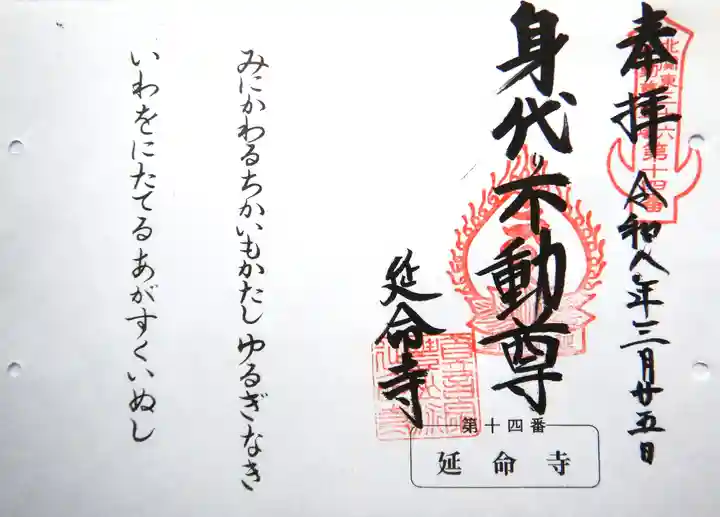 奉拝
令和八年三月廿五日
北関東三十六
第十四番
身代り不動尊
延命寺
第十四番
延命寺
みにかわるちかいもかたしゆるぎなき
いわをにたてるあがすくいぬし